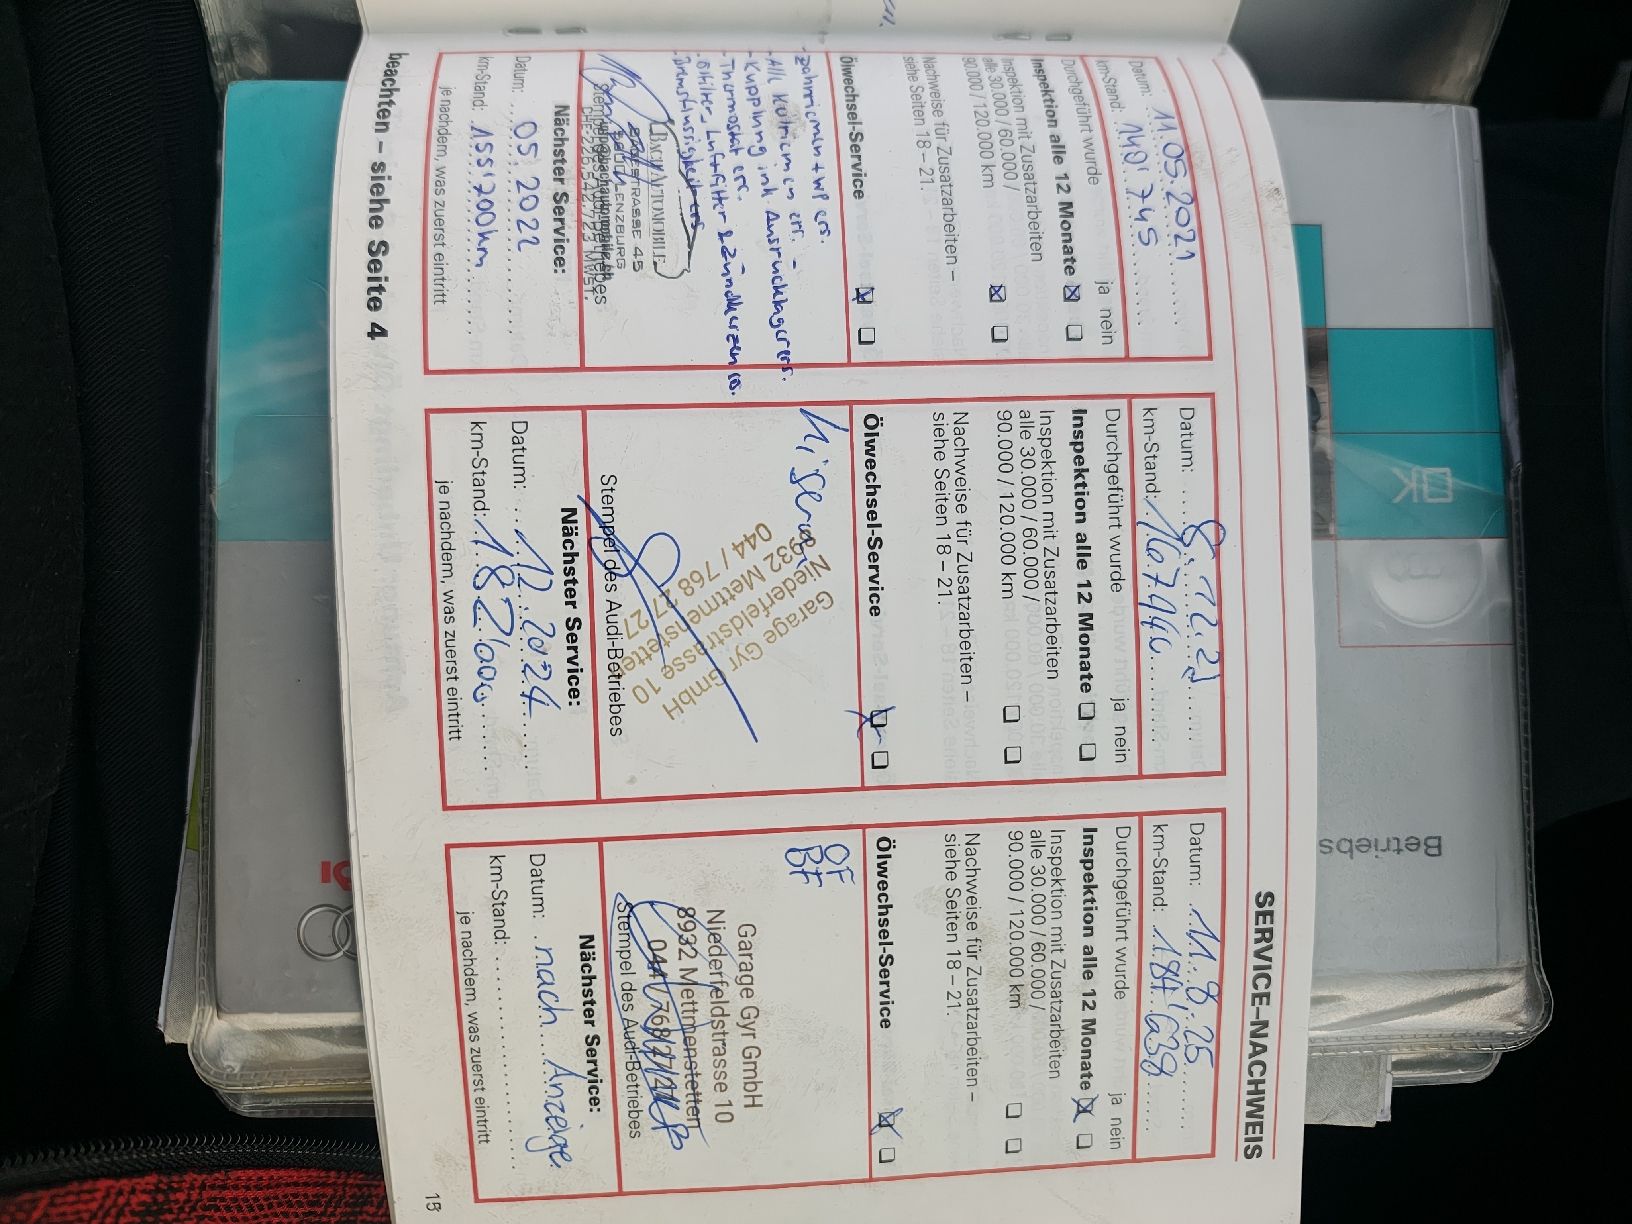 SERVICE–NACHWEIS
Datum: 11.05.2021
km-Stand: 140'745
Durchgeführt wurde ja nein
Inspektion alle 12 Monate
Inspektion mit Zusatzarbeiten
alle 30.000 / 60.000 /
90.000 / 120.000 km
Nachweise für Zusatzarbeiten –
siehe Seiten 18 – 21.
Ölwechsel-Service
- Zahnriemen + WP ers.
- Alle Keilriemen ers. -
- Kupplung inkl. Ausrücklager ers.
- Thermostat ers.
- Ölfilter, Luftfilter & Zündkerzen es.
- Bremsflüssigkeit ers
BACH AUTOMOBILE
STRASSE 45
LENZBURG
Stempel des Audi-Betriebes
Nächster Service:
Datum: 05.2022
km-Stand: 155'700km
je nachdem, was zuerst eintritt
Datum: 8.12.23
km-Stand:
Durchgeführt wurde ja nein
Inspektion alle 12 Monate
Inspektion mit Zusatzarbeiten
alle 30.000 / 60.000 /
90.000 / 120.000 km
Nachweise für Zusatzarbeiten –
siehe Seiten 18 – 21.
Ölwechsel-Service
Garage Gyr GmbH
Niederfeldstrasse 10
8932 Mettmenstetten
044 / 768 27 27
Stempel des Audi-Betriebes
Nächster Service:
Datum: 12.2024
km-Stand: 182'000
je nachdem, was zuerst eintritt
Datum: 11.8.25
km-Stand: 181'638
Durchgeführt wurde ja nein
Inspektion alle 12 Monate
Inspektion mit Zusatzarbeiten
alle 30.000 / 60.000 /
90.000 / 120.000 km
Nachweise für Zusatzarbeiten –
siehe Seiten 18 – 21.
Ölwechsel-Service
OF
BF
Garage Gyr GmbH
Niederfeldstrasse 10
8932 Mettmenstetten
044 / 768 27 27
Stempel des Audi-Betriebes
Nächster Service:
Datum: nach Anzeige
km-Stand:
je nachdem, was zuerst eintritt
beachten – siehe Seite 4
15
Betriebs